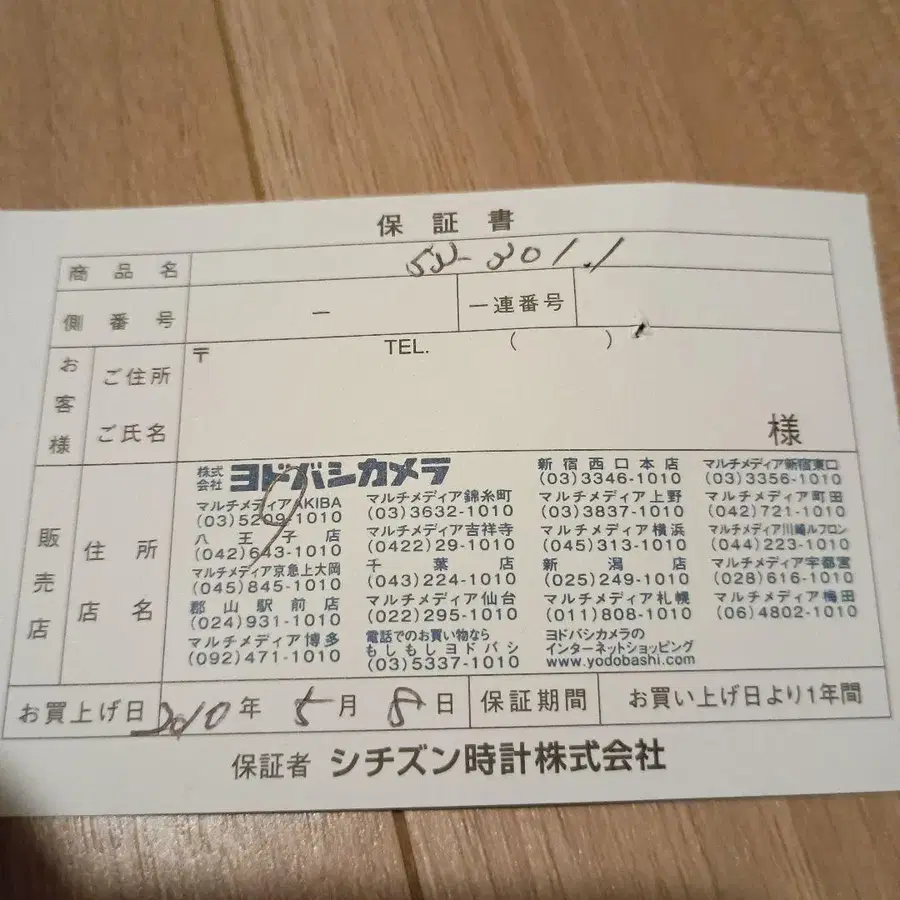 保証書
商品名
側番号 ー 一連番号
お客様 ご住所 〒 TEL. ( )
ご氏名 様
販売店 住所 店名
株式会社 ヨドバシカメラ
マルチメディアAKIBA
(03)5209-1010
八王子店
(042)643-1010
マルチメディア京急上大岡
(045)845-1010
郡山駅前店
(024)931-1010
マルチメディア博多
(092)471-1010
マルチメディア錦糸町
(03)3632-1010
マルチメディア吉祥寺
(0422)29-1010
千葉店
(043)224-1010
マルチメディア仙台
(022)295-1010
電話でのお買い物なら
もしもしヨドバシ
(03)5337-1010
新宿西口本店
(03)3346-1010
マルチメディア上野
(03)3837-1010
マルチメディア横浜
(045)313-1010
新潟店
(025)249-1010
マルチメディア札幌
(011)808-1010
ヨドバシカメラの
インターネットショッピング
www.yodobashi.com
マルチメディア新宿東口
(03)3356-1010
マルチメディア町田
(042)721-1010
マルチメディア川崎ルフロン
(044)223-1010
マルチメディア宇都宮
(028)616-1010
マルチメディア梅田
(06)4802-1010
お買上げ日 2010年 5月 8日 保証期間 お買い上げ日より1年間
保証者 シチズン時計株式会社